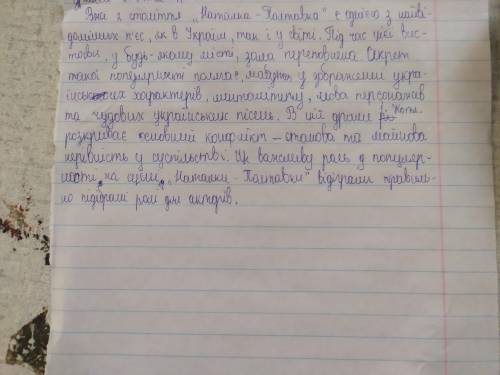 Вже 2 століття „Наталка-Полтавка" є однією з найві-
доміших п'єс, як в Україні, так і у світі. Під час цієї вис-
тави, у будь-якому місті, зала переповнена. Секрет
такої популярності полягає, мабуть у зображенні укра-
їнських характерів, менталітету, мова персонажів
та чудових українських пісень. В цій драмі
розкриває основний конфлікт – станова та майнова
нерівність у суспільстві. Цю важливу роль у популяр-
ності на сцені „Наталки-Полтавки" відіграли правиль-
но підібрані ролі для акторів.